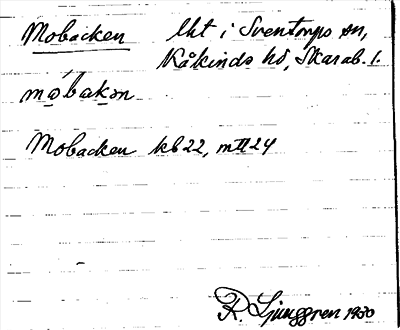 Mobacken lht i Sventorps sn,
Kåkinds hd, Skarab. l.
mobakən
Mobacken kb 22, mII 24
R. Ljunggren 1950